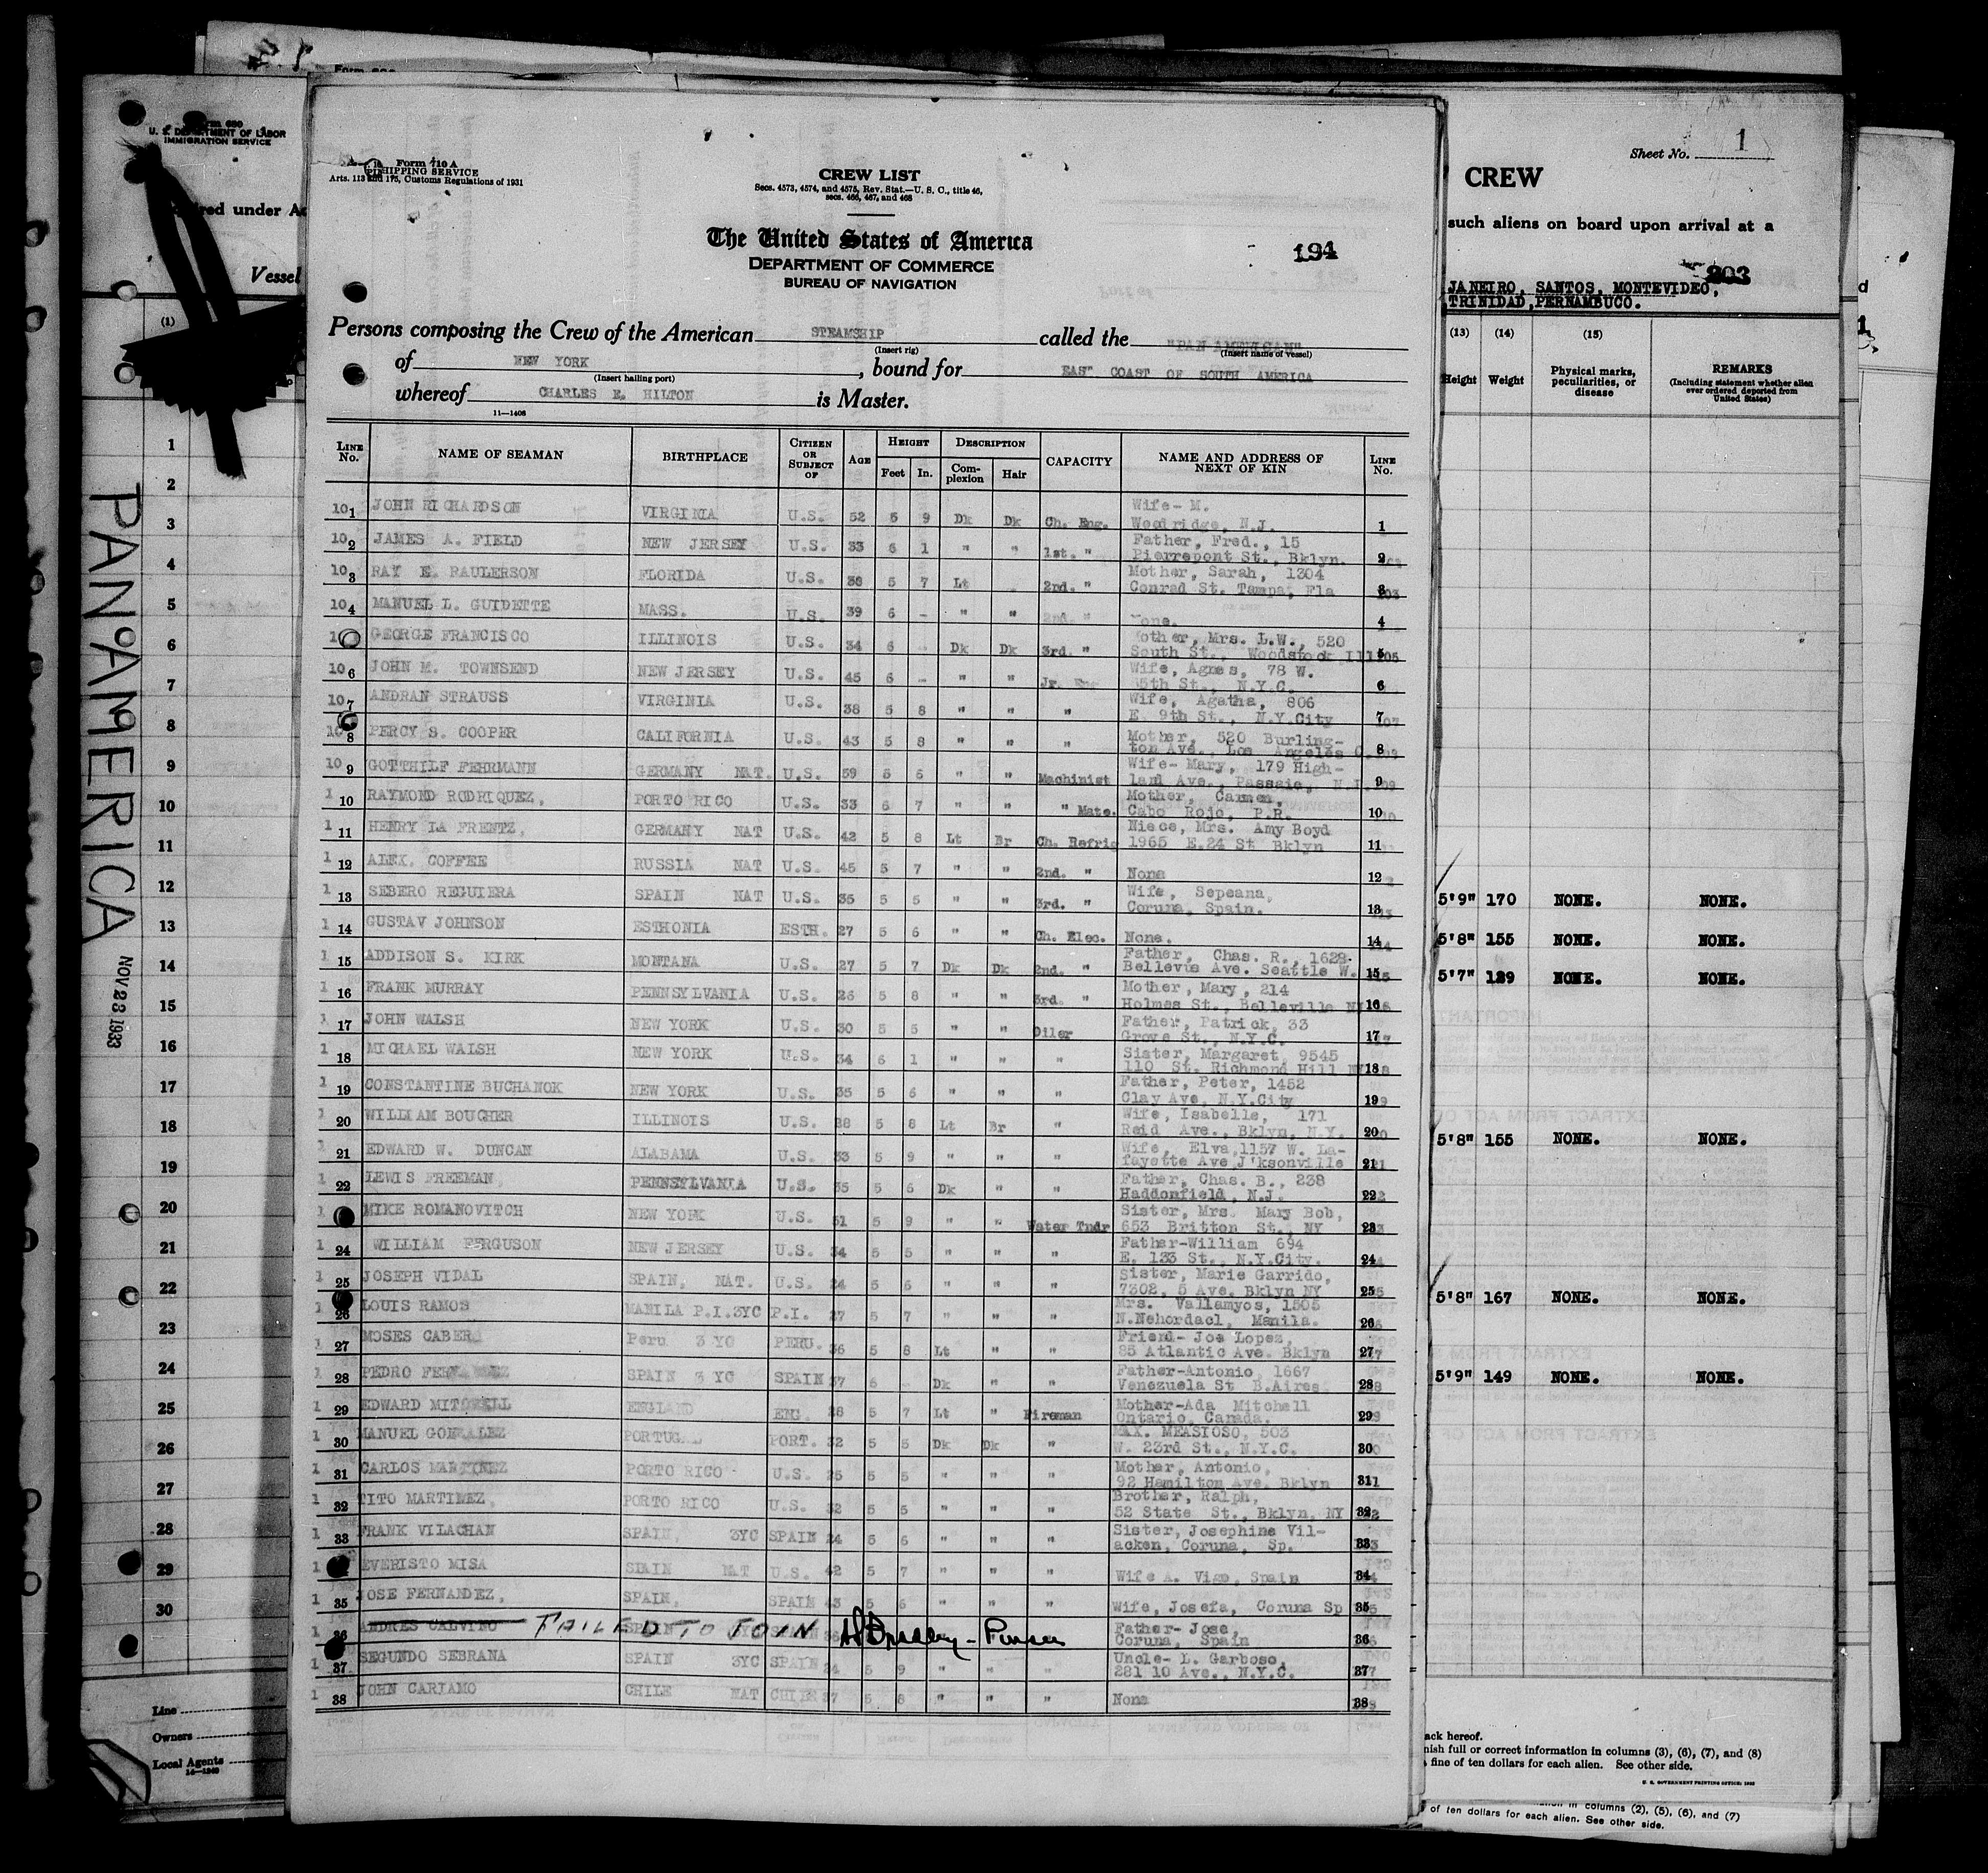 Form 680
U. S. DEPARTMENT OF LABOR
IMMIGRATION SERVICE
Vessel
(1)
PAN AMERICA
NOV 28 1933
1
2
3
4
5
6
7
8
9
10
11
12
13
14
15
16
17
18
19
20
21
22
23
24
25
26
27
28
29
30
Line
Owners
Local Agents
Form 710 A
SHIPPING SERVICE
Arts. 113 and 175, Customs Regulations of 1931
CREW LIST
Secs. 4573, 4574, and 4575, Rev. Stat.—U. S. C., title 46,
secs. 466, 467, and 468
The United States of America
DEPARTMENT OF COMMERCE
BUREAU OF NAVIGATION
194
Persons composing the Crew of the American STEAMSHIP called the "PAN AMERICAN"
(Insert rig) (Insert name of vessel)
of NEW YORK, bound for EAST COAST OF SOUTH AMERICA
(Insert hailing port)
whereof CHARLES E. HILTON is Master.
11—1408
LINE No. NAME OF SEAMAN BIRTHPLACE CITIZEN OR SUBJECT OF AGE HEIGHT Feet In. DESCRIPTION Complexion Hair CAPACITY NAME AND ADDRESS OF NEXT OF KIN LINE No.
101 JOHN RICHARDSON VIRGINIA U.S. 52 5 9 Dk Dk Ch. Eng. Wife- M. Woodridge, N.J. 1
102 JAMES A. FIELD NEW JERSEY U.S. 33 6 1 " " 1st. " Father, Fred., 15 Pierrepont St., Bklyn. 2
103 RAY E. RAULERSON FLORIDA U.S. 38 5 7 Lt 2nd. " Mother, Sarah, 1304 Conrad St. Tampa, Fla 3
104 MANUEL L. GUIDETTE MASS. U.S. 39 6 - " " 2nd. " None. 4
GEORGE FRANCISCO ILLINOIS U.S. 34 6 - Dk Dk 3rd. " Mother, Mrs. L.W., 520 South St., Woodstock Ill 5
106 JOHN M. TOWNSEND NEW JERSEY U.S. 45 6 - " " Jr. Eng Wife, Agnes, 78 W. 85th St., N.Y.C. 6
107 ANDRAN STRAUSS VIRGINIA U.S. 38 5 8 " " " Wife, Agatha, 806 E. 9th St., N.Y.City 7
108 PERCY S. COOPER CALIFORNIA U.S. 43 5 8 " " " Mother, 520 Burling- ton Ave., Los Angeles C. 8
109 GOTTHILF FEHRMANN GERMANY NAT. U.S. 59 5 6 " " Machinist Wife- Mary, 179 High- land Ave., Passaic, N.J. 9
1 10 RAYMOND RODRIQUEZ, PORTO RICO U.S. 33 5 7 " " " Mate. Mother, Carmen, Cabo Rojo, P.R. 10
1 11 HENRY LA FRENTZ, GERMANY NAT U.S. 42 5 8 Lt Br Ch. Refrig Niece, Mrs. Amy Boyd 1965 E.24 St Bklyn 11
1 12 ALEX. COFFEE RUSSIA NAT U.S. 45 5 7 " " 2nd. " None 12
1 13 SEBERO REGUIERA SPAIN NAT U.S. 35 5 5 " " 3rd. " Wife, Sepeana, Coruna, Spain. 13
1 14 GUSTAV JOHNSON ESTHONIA ESTH. 27 5 6 " " Ch. Elec. None. 14
1 15 ADDISON S. KIRK MONTANA U.S. 27 5 7 Dk Dk 2nd. " Father, Chas. R., 1628- Bellevue Ave. Seattle W. 15
1 16 FRANK MURRAY PENNSYLVANIA U.S. 26 5 8 " " 3rd. " Mother, Mary, 214 Holmes St., Belleville NJ 16
1 17 JOHN WALSH NEW YORK U.S. 30 5 5 " " Oiler Father, Patrick, 33 Grove St., N.Y.C. 17
1 18 MICHAEL WALSH NEW YORK U.S. 34 6 1 " " " Sister, Margaret, 9545 110 St. Richmond Hill NY 18
1 19 CONSTANTINE BUCHANOK NEW YORK U.S. 35 5 6 " " " Father, Peter, 1452 Clay Ave, N.Y.City 19
1 20 WILLIAM BOUGHER ILLINOIS U.S. 28 5 8 Lt Br " Wife, Isabelle, 171 Reid Ave., Bklyn, N.Y. 20
1 21 EDWARD W. DUNCAN ALABAMA U.S. 33 5 9 " " " Wife, Elva,1157 W. La- fayette Ave J'ksonville 21
1 22 LEWIS FREEMAN PENNSYLVANIA U.S. 35 5 6 Dk " " Father, Chas. B., 238 Haddonfield, N.J. 22
1 MIKE ROMANOVITCH NEW YORK U.S. 31 5 9 " " Water Tndr Sister, Mrs. Mary Bob, 653 Britton St., NY 23
1 24 WILLIAM FERGUSON NEW JERSEY U.S. 34 5 5 " " " Father-William 694 E. 133 St., N.Y.City. 24
1 25 JOSEPH VIDAL SPAIN, NAT. U.S. 24 5 6 " " " Sister, Marie Garrido, 7302, 5 Ave. Bklyn NY 25
1 26 LOUIS RAMOS MANILA P.I. 3YC P.I. 27 5 7 " " " Mrs. Vallamyos, 1505 N.Nehordacl, Manila. 26
1 27 MOSES CABER Peru 3 YC PERU. 36 5 8 Lt " " Friend- Joe Lopez, 85 Atlantic Ave. Bklyn 27
1 28 PEDRO FERNANDEZ SPAIN 3 YC SPAIN 37 Dk " " Father-Antonio, 1667 Venezuela St B.Aires 28
1 29 EDWARD MITCHELL ENGLAND ENG. 28 5 7 Lt " Fireman Mother-Ada Mitchell Ontario, Canada. 29
1 30 MANUEL GONZALEZ PORTUGAL PORT. 32 5 5 Dk Dk " MAX. MEASIOSO, 503 W. 23rd St., N.Y.C. 30
1 31 CARLOS MARTINEZ PORTO RICO U.S. 25 5 5 " " " Mother, Antonio, 92 Hamilton Ave. Bklyn 31
1 32 TITO MARTINEZ, PORTO RICO U.S. 32 5 5 " " " Brother, Ralph, 52 State St., Bklyn, NY 32
1 33 FRANK VILACHAN SPAIN, 3YC SPAIN 24 5 6 " " " Sister, Josephine Vil- acken, Coruna, Sp. 33
1 EVERISTO MISA SPAIN NAT U.S. 42 5 7 " " " Wife A. Vigo, Spain 34
1 35 JOSE FERNANDEZ, SPAIN, SPAIN 43 5 6 " " " Wife, Josefa, Coruna Sp 35
1 36 ANDRES CALVINO FAILED TO JOIN Purser Father- Jose, Coruna, Spain 36
1 37 SEGUNDO SEBRANA SPAIN 3YC SPAIN 24 5 9 " " " Uncle- L. Garboso, 281 10 Ave., N.Y.C. 37
1 38 JOHN CARIAMO CHILE NAT CHILE 37 5 8 " " " None 38
Sheet No. 1
CREW
such aliens on board upon arrival at a
203
JANEIRO, SANTOS, MONTEVIDEO,
TRINIDAD, PERNAMBUCO.
(13) (14) (15)
Height Weight Physical marks, peculiarities, or disease REMARKS
(Including statement whether alien ever ordered deported from United States)
5'9" 170 NONE. NONE.
5'8" 155 NONE. NONE.
5'7" 129 NONE. NONE.
5'8" 155 NONE. NONE.
5'8" 167 NONE. NONE.
5'9" 149 NONE. NONE.
ack hereof.
nish full or correct information in columns (3), (6), (7), and (8)
fine of ten dollars for each alien. See other side.
U. S. GOVERNMENT PRINTING OFFICE: 1932
in columns (2), (5), (6), and (7)
of ten dollars for each alien. See other side.